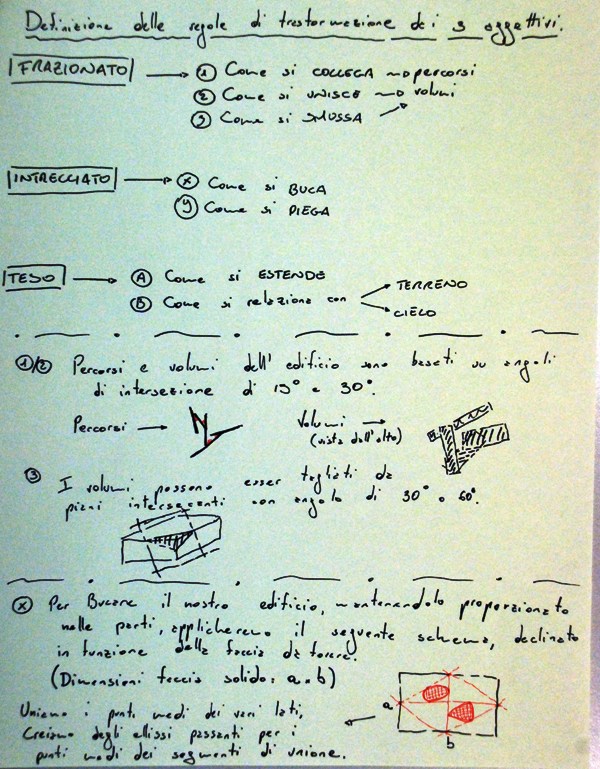 Definizione delle regole di trasformazione dei 3 aggettivi.
FRAZIONATO → 1 Come si COLLEGA → percorsi
2 Come si UNISCE → volumi
3 Come si SMUSSA
INTRECCIATO → x Come si BUCA
y Come si PIEGA
TESO → A Come si ESTENDE
B Come si relaziona con → TERRENO
→ CIELO
1/2 Percorsi e volumi dell'edificio sono basati su angoli
di intersezione di 15° e 30°.
Percorsi → Volumi →
(vista dall'alto)
3 I volumi possono esser tagliati da
piani intersecanti con angolo di 30° o 60°.
x Per Bucare il nostro edificio, mantenendolo proporzionato
nelle parti, applicheremo il seguente schema, declinato
in funzione della faccia da forare.
(Dimensioni faccia solido: a × b)
Uniamo i punti medi dei vari lati,
creiamo degli ellissi passanti per i
punti medi dei segmenti di unione.
a
b